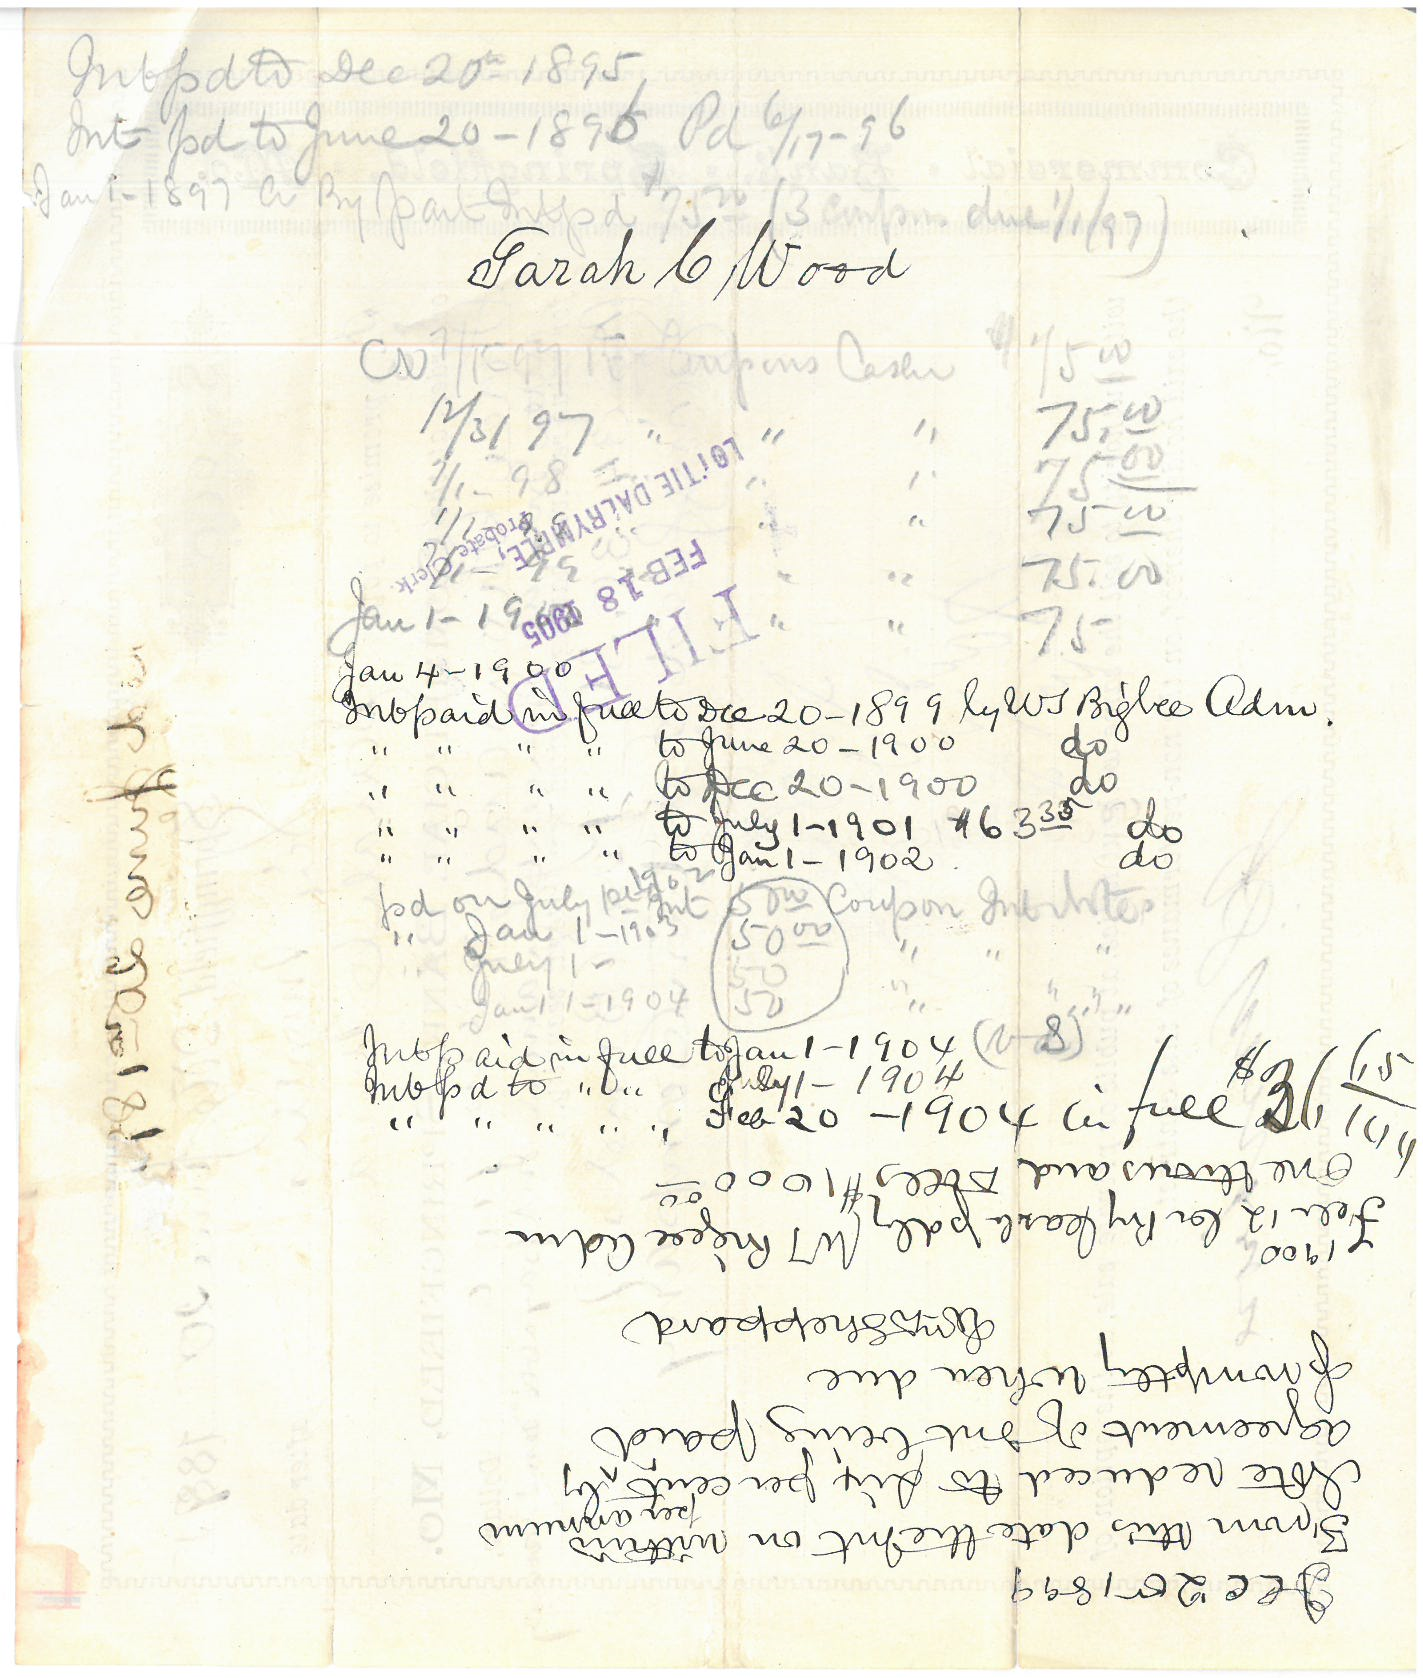 Int pd to Dec 20th 1895
Int pd to June 20 - 1896 Pd 6/17-96
Jan 1 - 1897 Cr By part Int pd $75 00 (3 coupons due 1/1/97)
Sarah C Wood
Cr 7/1-97 Coupons Cash $75 00
12/31 97 " " " 75.00
98 " " 75 00
" " 75 00
" " 75.00
Jan 1 - 1900 " " " 75
Jan 4 - 1900
Int paid in full to Dec 20 - 1899 by WT Bigbee Adm.
" " " " to June 20 - 1900 do
" " " " to Dec 20 - 1900 do
" " " " to July 1 - 1901 $63 35 do
" " " " to Jan 1 - 1902 do
pd on July 1st 1902 Int 50 00 Coupon Int Notes
" Jan 1 - 1903 50 00 " " "
July 1 - 50 "
Jan 1 - 1904 50 " " "
Int paid in full to Jan 1 - 1904
Int pd to " " July 1 - 1904
" " " " " Feb 20 - 1904 in full
LOTTIE DALRYMPLE,
Probate Clerk.
FEB 18 1905
FILED
June 20 - 181
Dec 20 1899
From this date the Int on within
Note reduced to six per cent per annum by
agreement of Int being paid
promptly when due
Sheppard
1900
Feb 12 Cr By Cash pd by WT Bigbee Adm
One thousand Dolls $1000 00